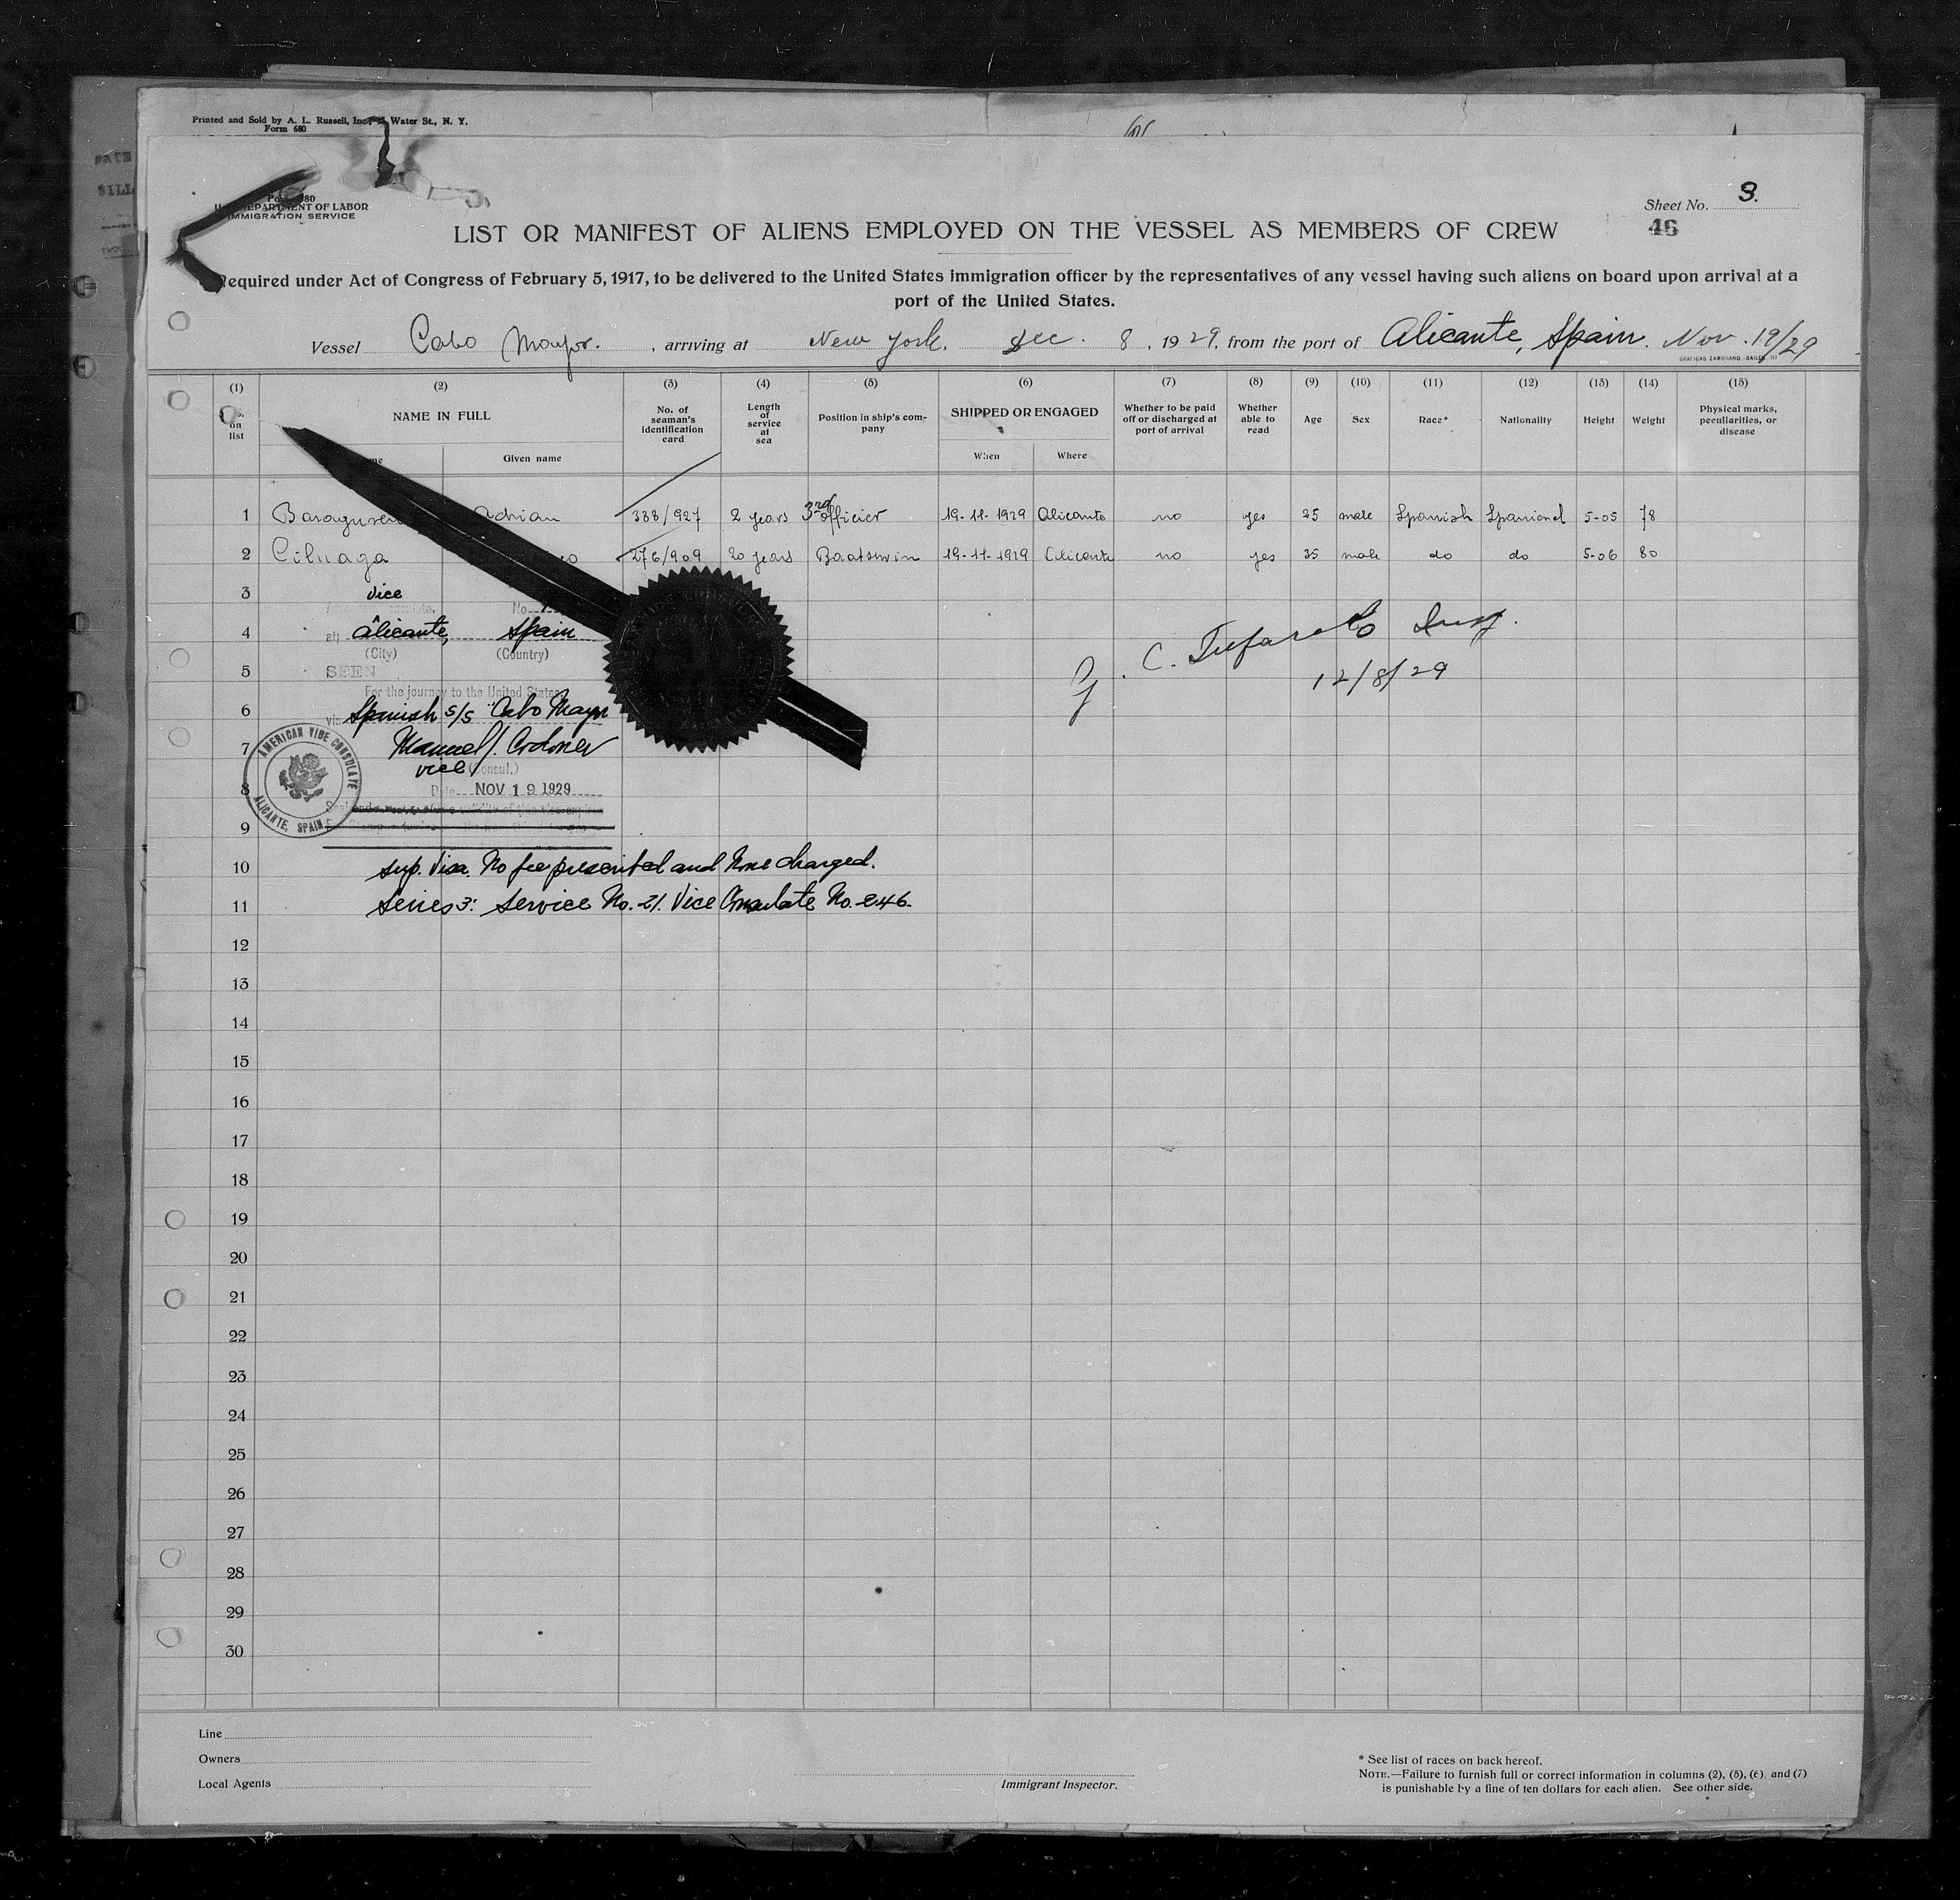 Printed and Sold by A. L. Russell, Inc., Water St., N. Y.
Form 680
DEPARTMENT OF LABOR
IMMIGRATION SERVICE
Sheet No. 3.
46
LIST OR MANIFEST OF ALIENS EMPLOYED ON THE VESSEL AS MEMBERS OF CREW
Required under Act of Congress of February 5, 1917, to be delivered to the United States immigration officer by the representatives of any vessel having such aliens on board upon arrival at a
port of the United States.
Vessel Cabo Mayor. , arriving at New York, Dec. 8, 1929, from the port of Alicante, Spain. Nov. 19/29
(1) (2) (3) (4) (5) (6) (7) (8) (9) (10) (11) (12) (13) (14) (15)
on list
NAME IN FULL
Given name
No. of seaman's identification card
Length of service at sea
Position in ship's company
SHIPPED OR ENGAGED
When
Where
Whether to be paid off or discharged at port of arrival
Whether able to read
Age
Sex
Race*
Nationality
Height
Weight
Physical marks, peculiarities, or disease
1 Adrian 338/927 2 years 3rd officier 19-11-1929 Alicante no yes 25 male Spanish Spaniard 5-05 78
2 276/909 20 years Baatswin 19-11-1929 Alicante no yes 35 male do do 5-06 80
3 vice
No.
4 at Alicante, Spain
(City) (Country)
5 SEEN
For the journey to the United States
6 via Spanish s/s "Cabo Mayor
7 Manuel J.
vice (Consul.)
8 Date NOV 19 1929
9
AMERICAN VICE CONSULATE
ALICANTE, SPAIN
C. Insp.
12/8/29
10 sup. Visa. No fee prescribed and None charged.
11 Series 3: Service No. 21. Vice Consulate No. 246.
12
13
14
15
16
17
18
19
20
21
22
23
24
25
26
27
28
29
30
Line
Owners
Local Agents
Immigrant Inspector.
* See list of races on back hereof.
NOTE.—Failure to furnish full or correct information in columns (2), (5), (6) and (7)
is punishable by a fine of ten dollars for each alien. See other side.